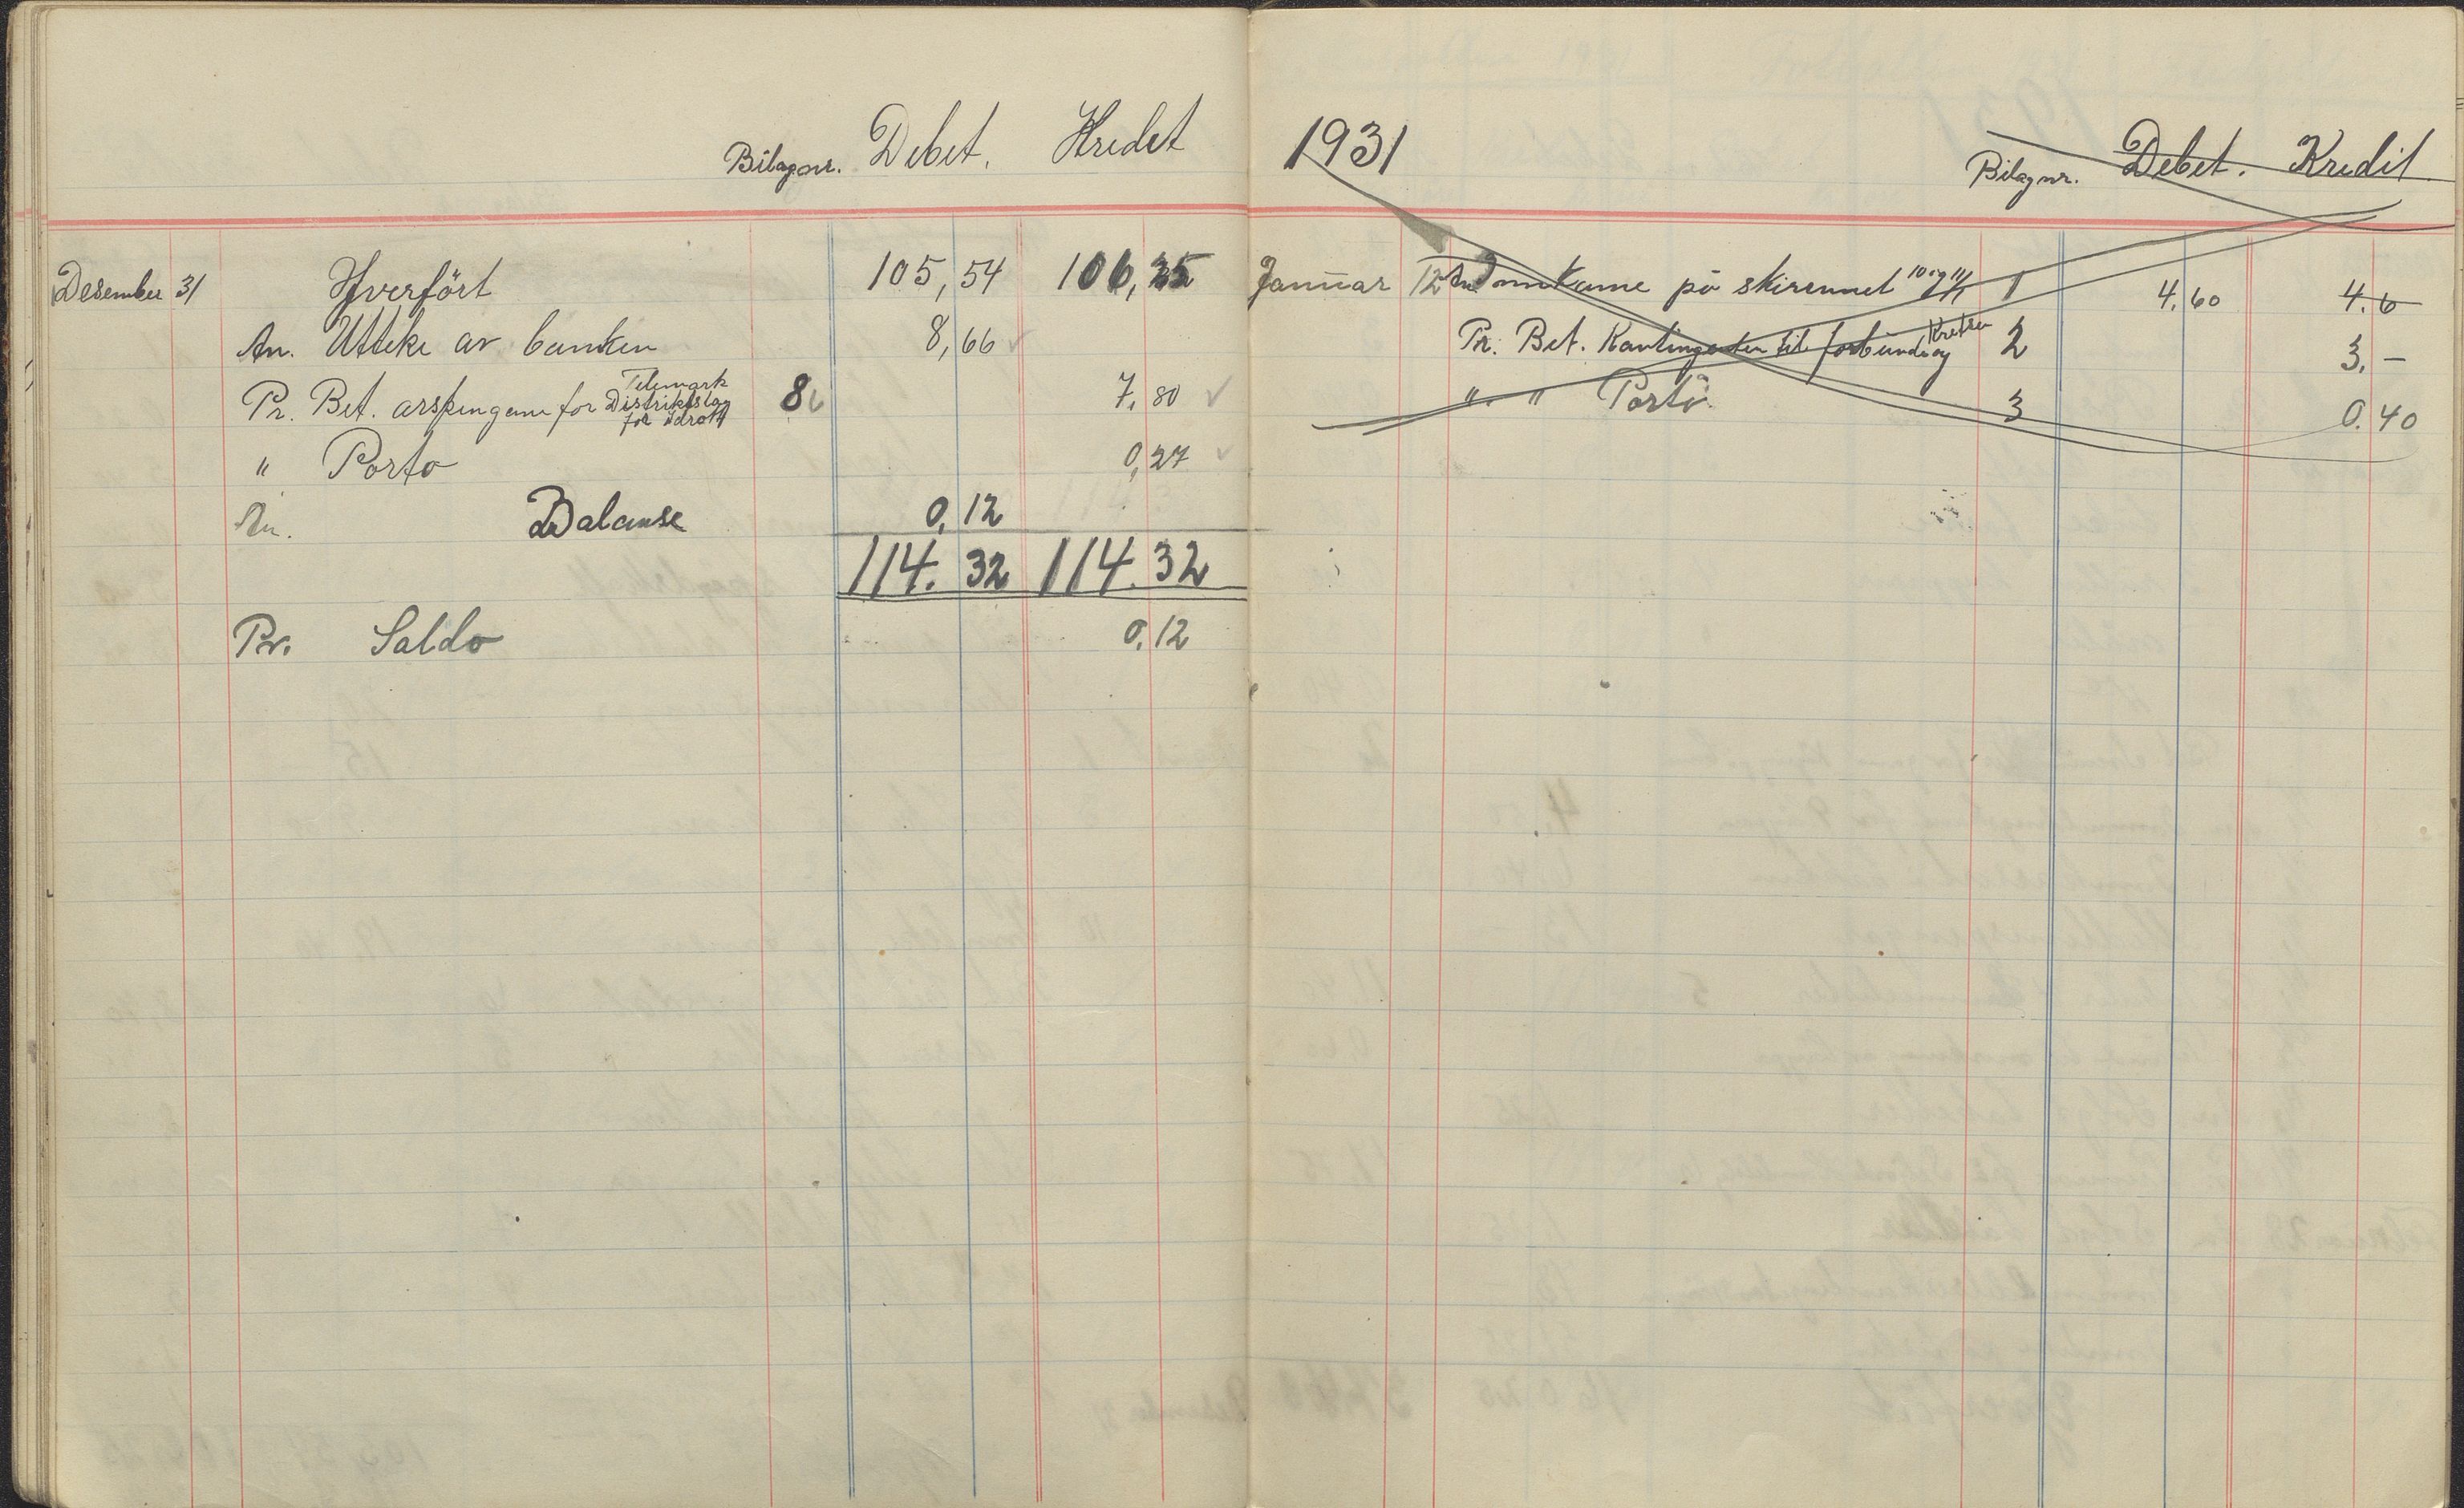 Bilagnr. Debet. Kredet
Desember 31 Överfört 105,54 106,25
An. Utteke av banken 8,66
Pr. Bet. årspengane for Telemark Distriktslag for idrott 8 7,80
" Porto 0,27
An. Balanse 0,12
114.32 114.32
Pr. Saldo 0,12
1931 Bilagnr. Debet. Kredit
Januar 12 An Innkome på skirennet 10 og 11/1 1 4,60 4.6
Pr. Bet. Kontingenten til forbund og Kretsen 2 3,-
" " Porto 3 0.40